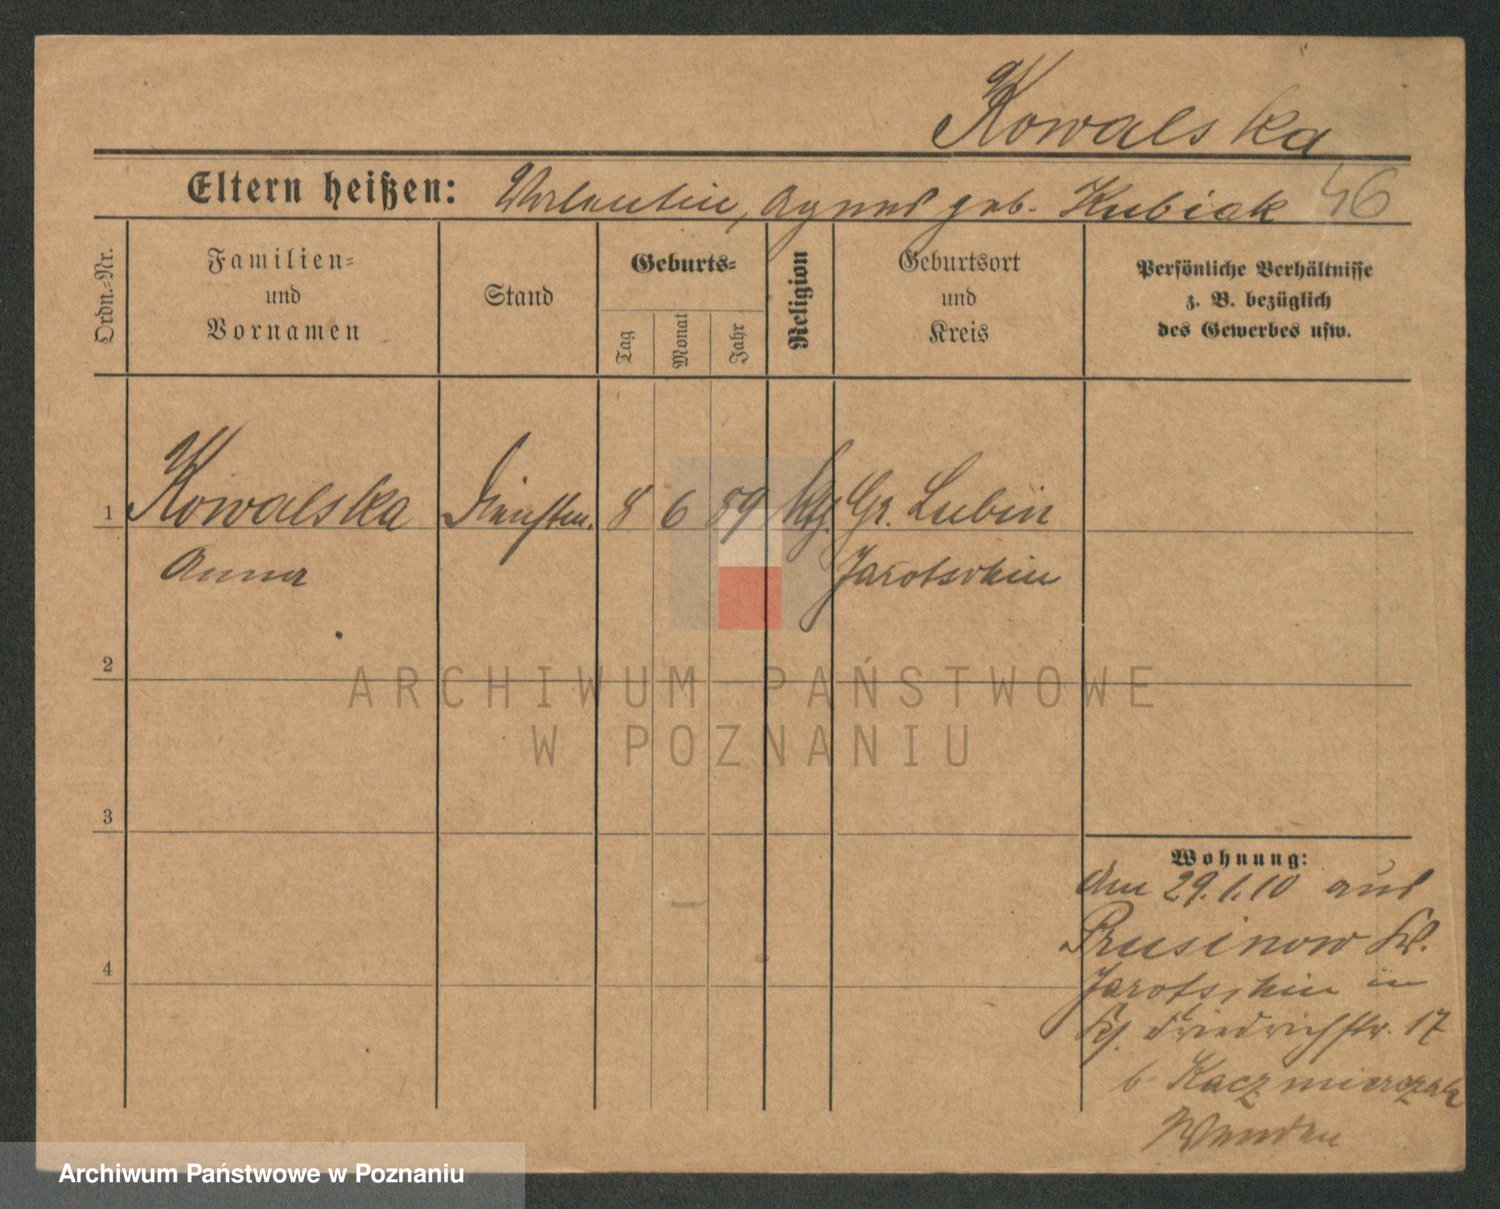 Kowalska
Eltern heißen: Valentin, Agnes geb. Kubiak 46
Ordn.-Nr.
Familien-
und
Vornamen
Stand
Geburts-
Tag
Monat
Jahr
Religion
Geburtsort
und
Kreis
Persönliche Verhältnisse
z. B. bezüglich
des Gewerbes usw.
1 Kowalska 8 6 89 kth. Gr. Lubin
Anna Jarotschin
2
3
4
Wohnung:
Am 29.1.10 aus
Prusinow Kr.
Jarotschin in
Friedrichstr. 17
b. Kaczmierczak
ARCHIWUM PAŃSTWOWE
W POZNANIU
Archiwum Państwowe w Poznaniu